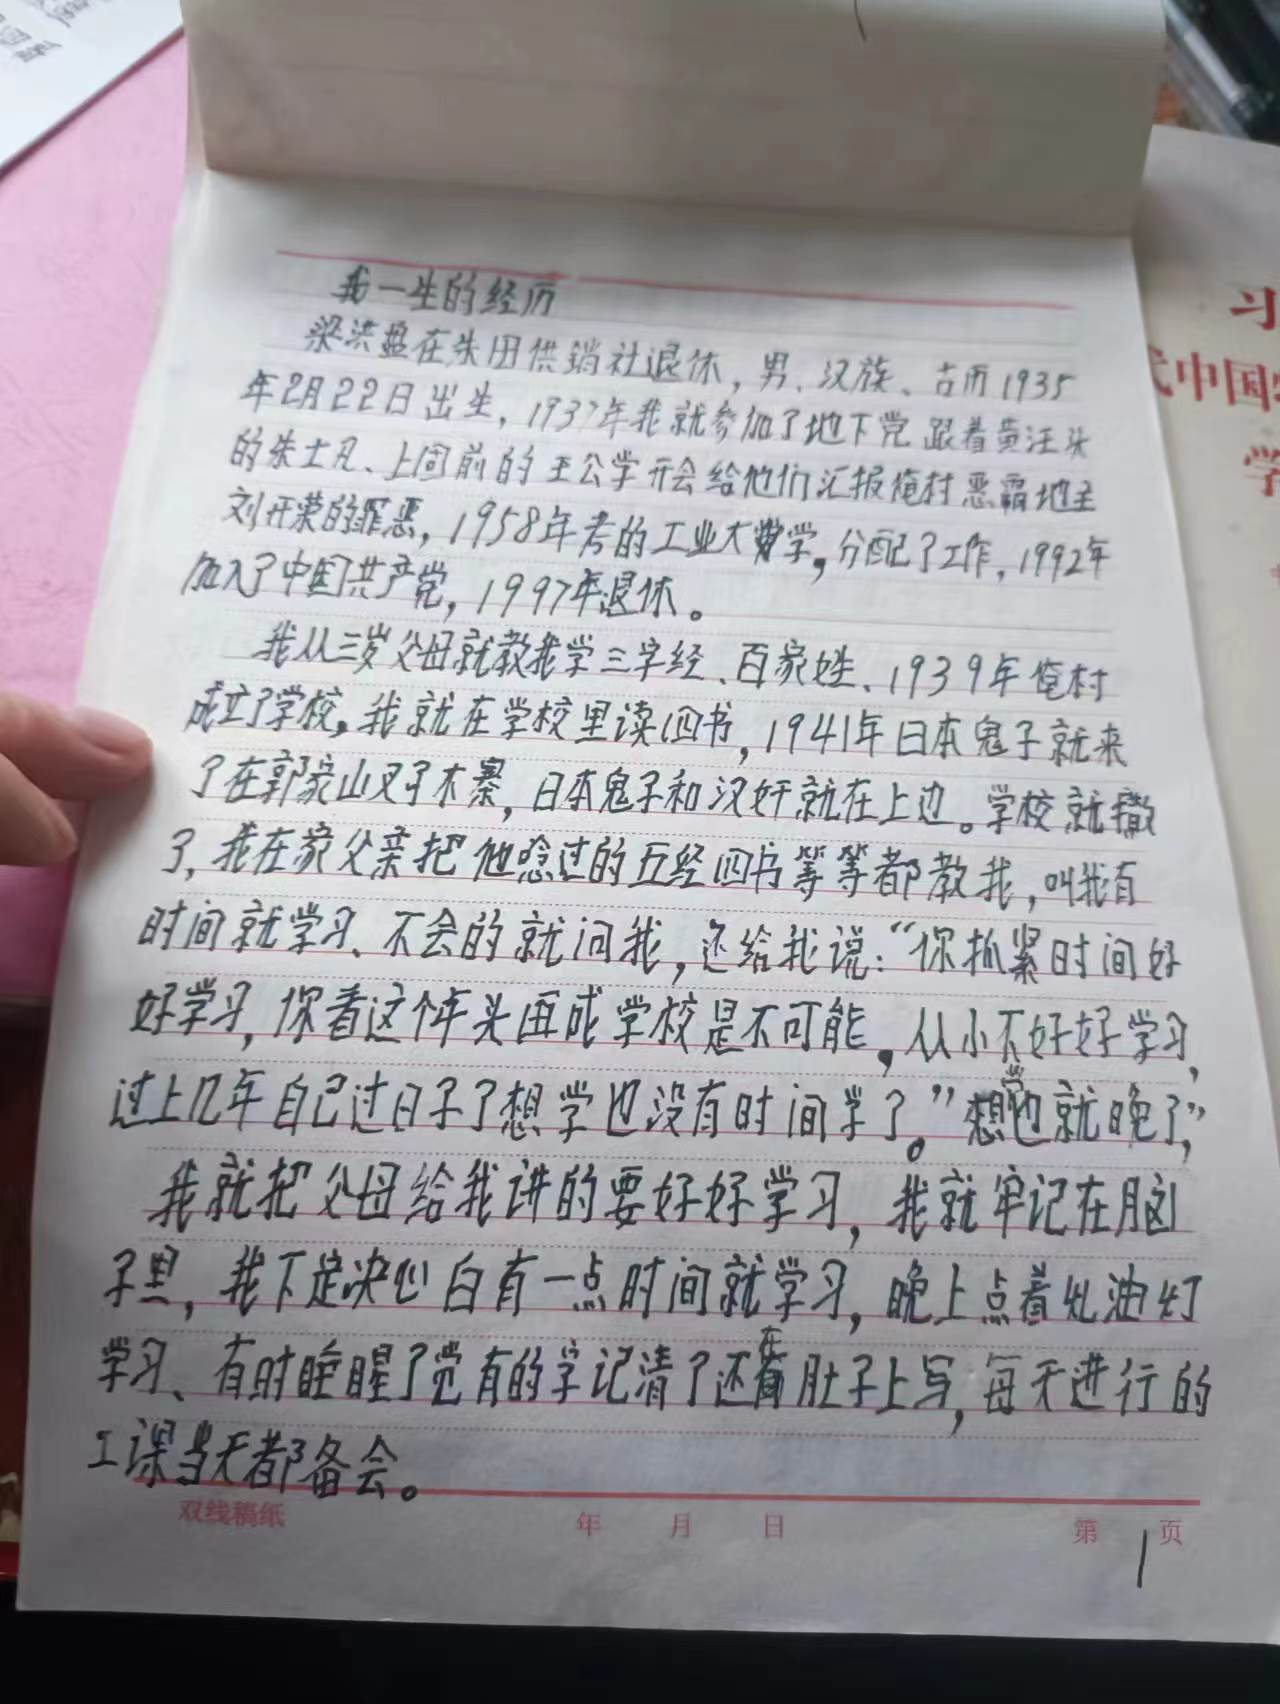 我一生的经历
梁洪盈在朱田供销社退休，男、汉族、古历1935
年2月22日出生，1937年我就参加了地下党跟着黄汪头
的朱士凡、上固前的王公学开会给他们汇报俺村恶霸地主
刘开荣的罪恶，1958年考的工业大学，分配了工作，1992年
加入了中国共产党，1997年退休。
我从三岁父母就教我学三字经、百家姓、1939年俺村
成立了学校，我就在学校里读四书，1941年日本鬼子就来
了在郭家山叉了木寨，日本鬼子和汉奸就在上边。学校就撤
了，我在家父亲把他念过的五经四书等等都教我，叫我有
时间就学习、不会的就问我，还给我说：“你抓紧时间好
好学习，你看这个年头再成学校是不可能，从小不好好学习，
过上几年自己过日子了想学也没有时间学了。”想学也就晚了，”
我就把父母给我讲的要好好学习，我就牢记在脑
子里，我下定决心白有一点时间就学习，晚上点着灿油灯
学习、有时睡醒了觉有的学记清了还在肚子上写，每天进行的
工课当天都备会。
双线稿纸 年 月 日 第 1 页
习
代中国特
学